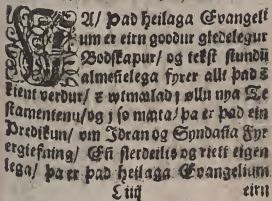 VA/ Þad heilaga Evangeli
um er eirn goodur gledelegur
Bodskapur/ og tekst stundū
almeñelega fyrer allt þad ꝛ
kient verdur/ ꝛ wtmalad j øllu nya Te
stamentenu/ og j so mꜳta/ þa er þad ein
Predikun/ om Jdran og Syndaña Fyr
ergiefning/ Eñ sierdeilis og riett eigen
lega/ þa er þad heilaga Evangelium
L iiij eirn